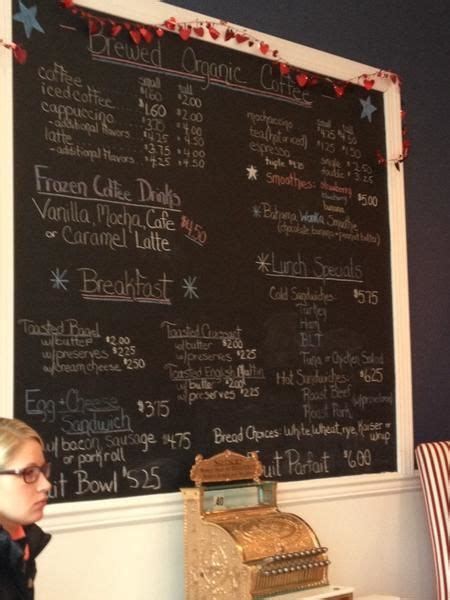 Brewed Organic Coffee
small tall
coffee $1.60 $2.00
iced coffee $1.60 $2.00
cappuccino $3.75 $4.00
-additional flavors $4.25 $4.50
latte $3.75 $4.00
-additional flavors $4.25 $4.50
small tall
mochaccino $4.25 $4.50
tea (hot or iced) $1.25 $1.50
espresso single 2.50
triple $4.25 double 3.25
Smoothies: strawberry
blueberry $5.00
banana
Bahama Smoothie
(chocolate banana + peanut butter)
Frozen Coffee Drinks
Vanilla, Mocha, Cafe $4.50
or Caramel Latte
Breakfast
Toasted Bagel
w/butter $2.00
w/preserves $2.25
w/cream cheese $2.50
Toasted Croissant
w/butter $2.00
w/preserves $2.25
Toasted English Muffin
w/butter $2.00
w/preserves $2.25
Egg + Cheese $3.75
Sandwich
w/ bacon, sausage $4.75
or pork roll
uit Bowl $5.25
Lunch Specials
Cold Sandwiches $5.75
Turkey
Ham
BLT
Tuna or Chicken Salad
Hot Sandwiches $6.25
Roast Beef
Roast Pork w/provolone
Bread Choices: White, Wheat, rye, Kaiser or
wrap
uit Parfait $6.00
40